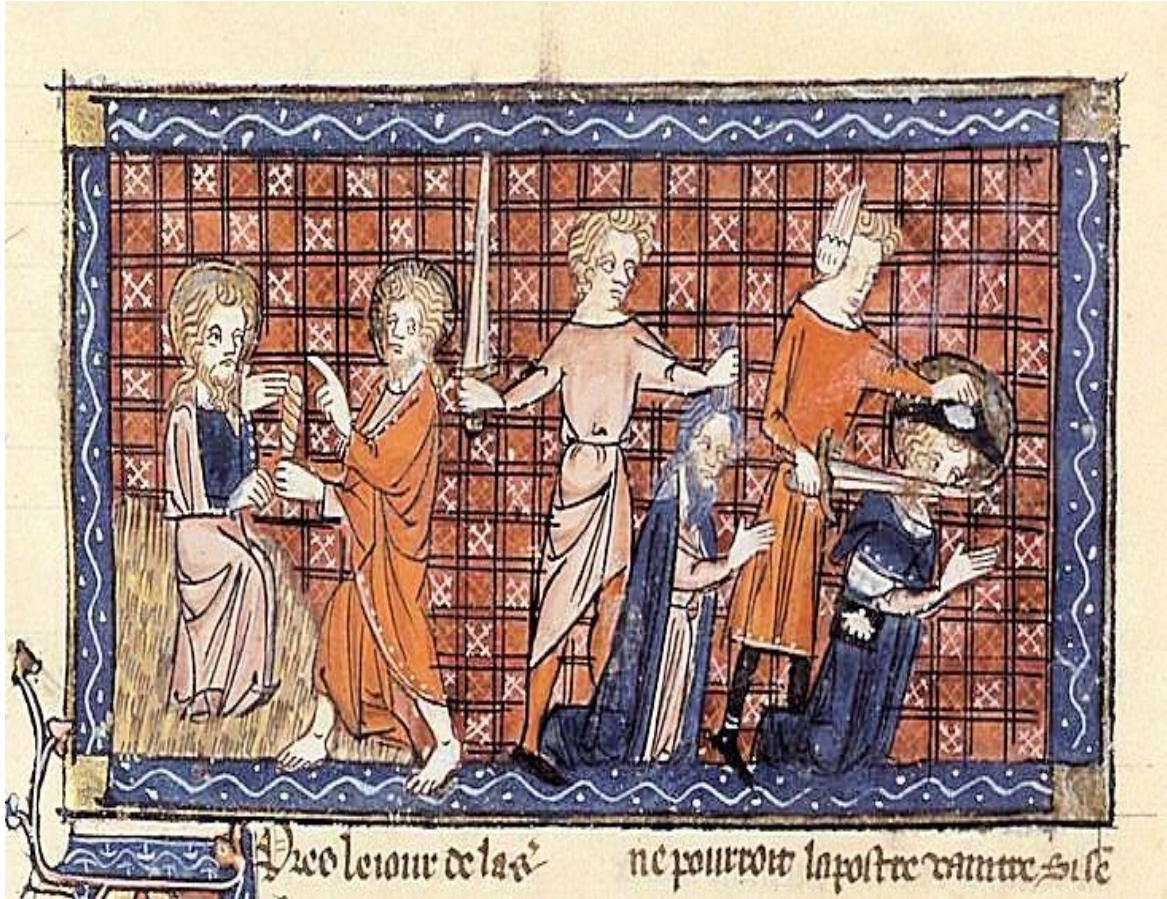 Pres le iour de la s̃
ne pourroit lapostre vaintre. Si sẽ